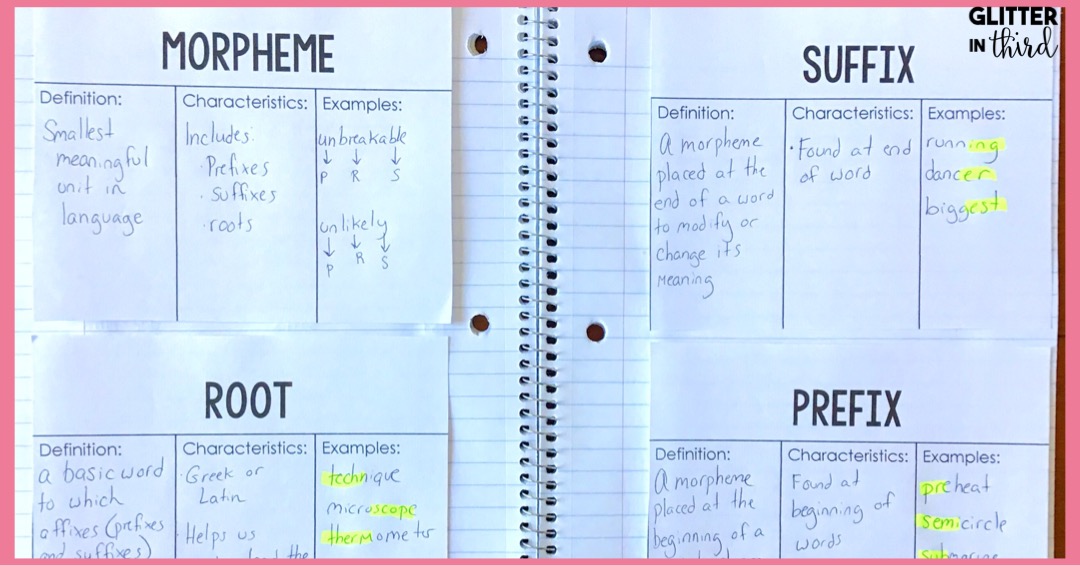 GLITTER
IN third
MORPHEME
Definition:
Smallest
meaningful
unit in
language
Characteristics:
Includes:
· Prefixes
· Suffixes
· roots
Examples:
unbreakable
P R S
unlikely
P R S
SUFFIX
Definition:
A morpheme
placed at the
end of a word
to modify or
change its
meaning
Characteristics:
· Found at end
of word
Examples:
running
dancer
biggest
ROOT
Definition:
a basic word
to which
affixes (prefixes
and suffixes)
Characteristics:
· Greek or
Latin
· Helps us
the
Examples:
technique
microscope
thermometer
PREFIX
Definition:
A morpheme
placed at the
beginning of a
Characteristics:
Found at
beginning of
words
Examples:
preheat
semicircle
submarine